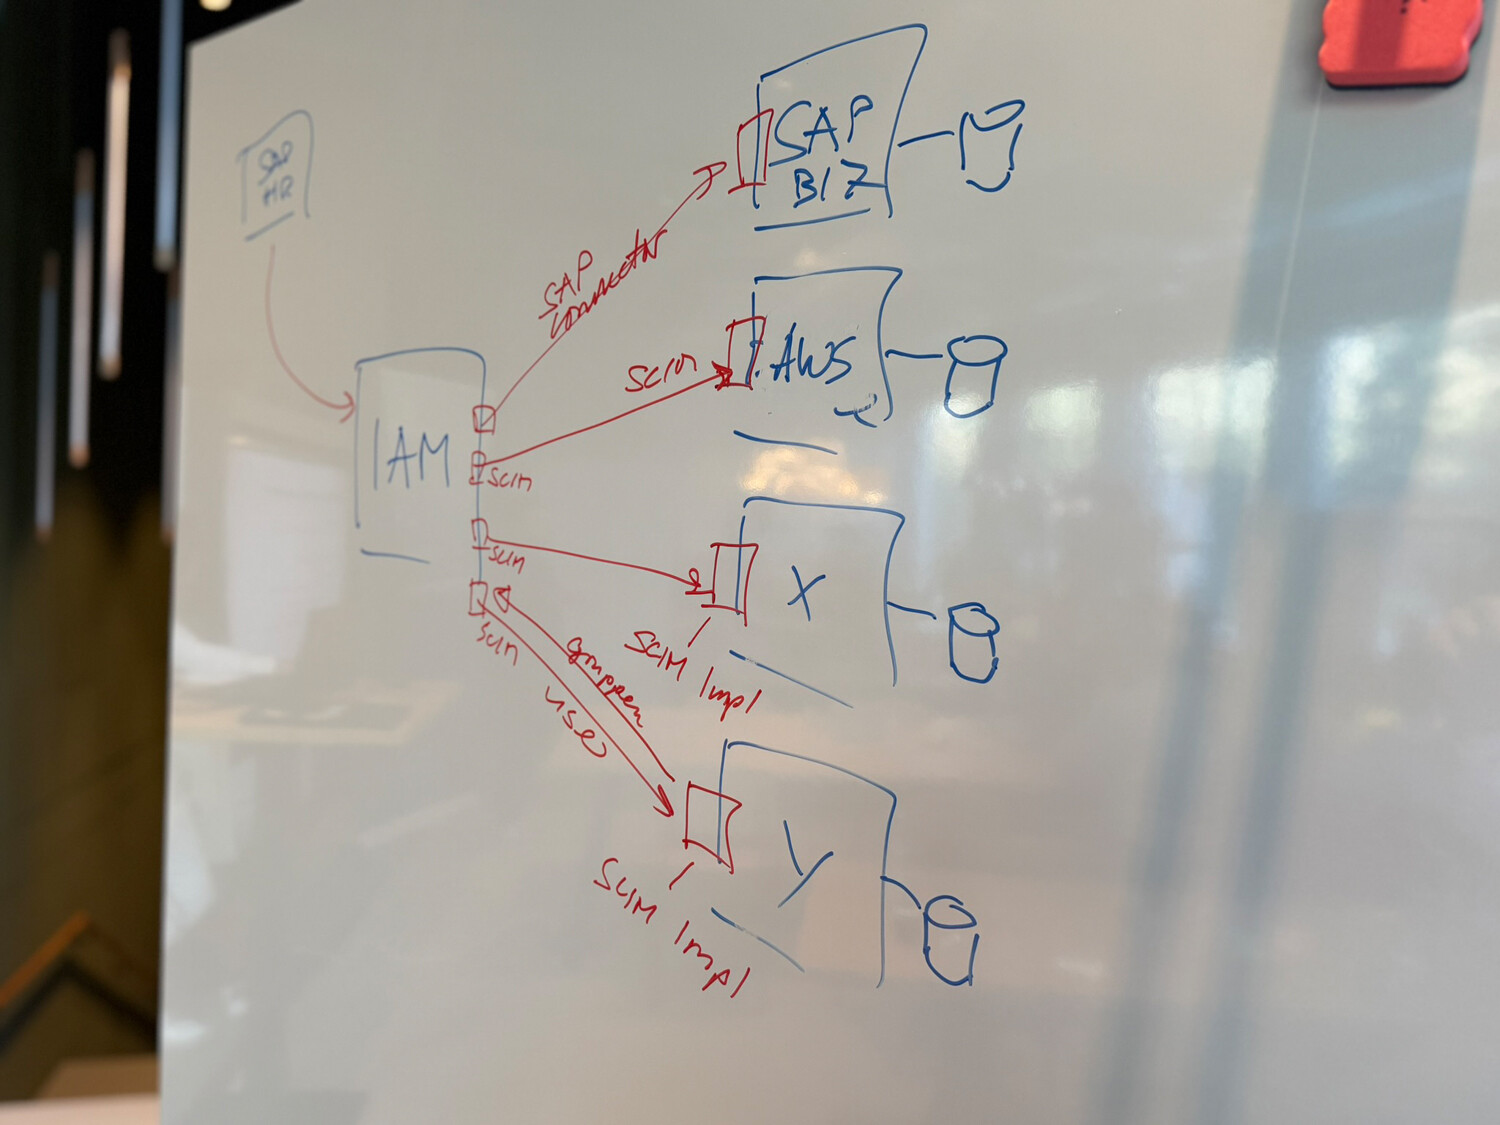 SAP
HR
SAP
BIZ
SAP
connector
AWS
SCIM
IAM
SCIM
SCIM
X
SCIM Impl
SCIM
gruppen
user
Y
SCIM Impl